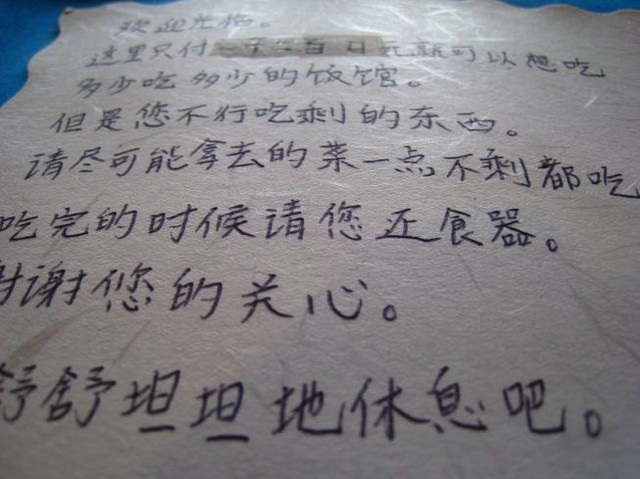 欢迎光临。
这里只付一千二百日元就可以想吃
多少吃多少的饭馆。
但是您不行吃剩的东西。
请尽可能拿去的菜一点不剩都吃
吃完的时候请您还食器。
谢谢您的关心。
舒舒坦坦地休息吧。